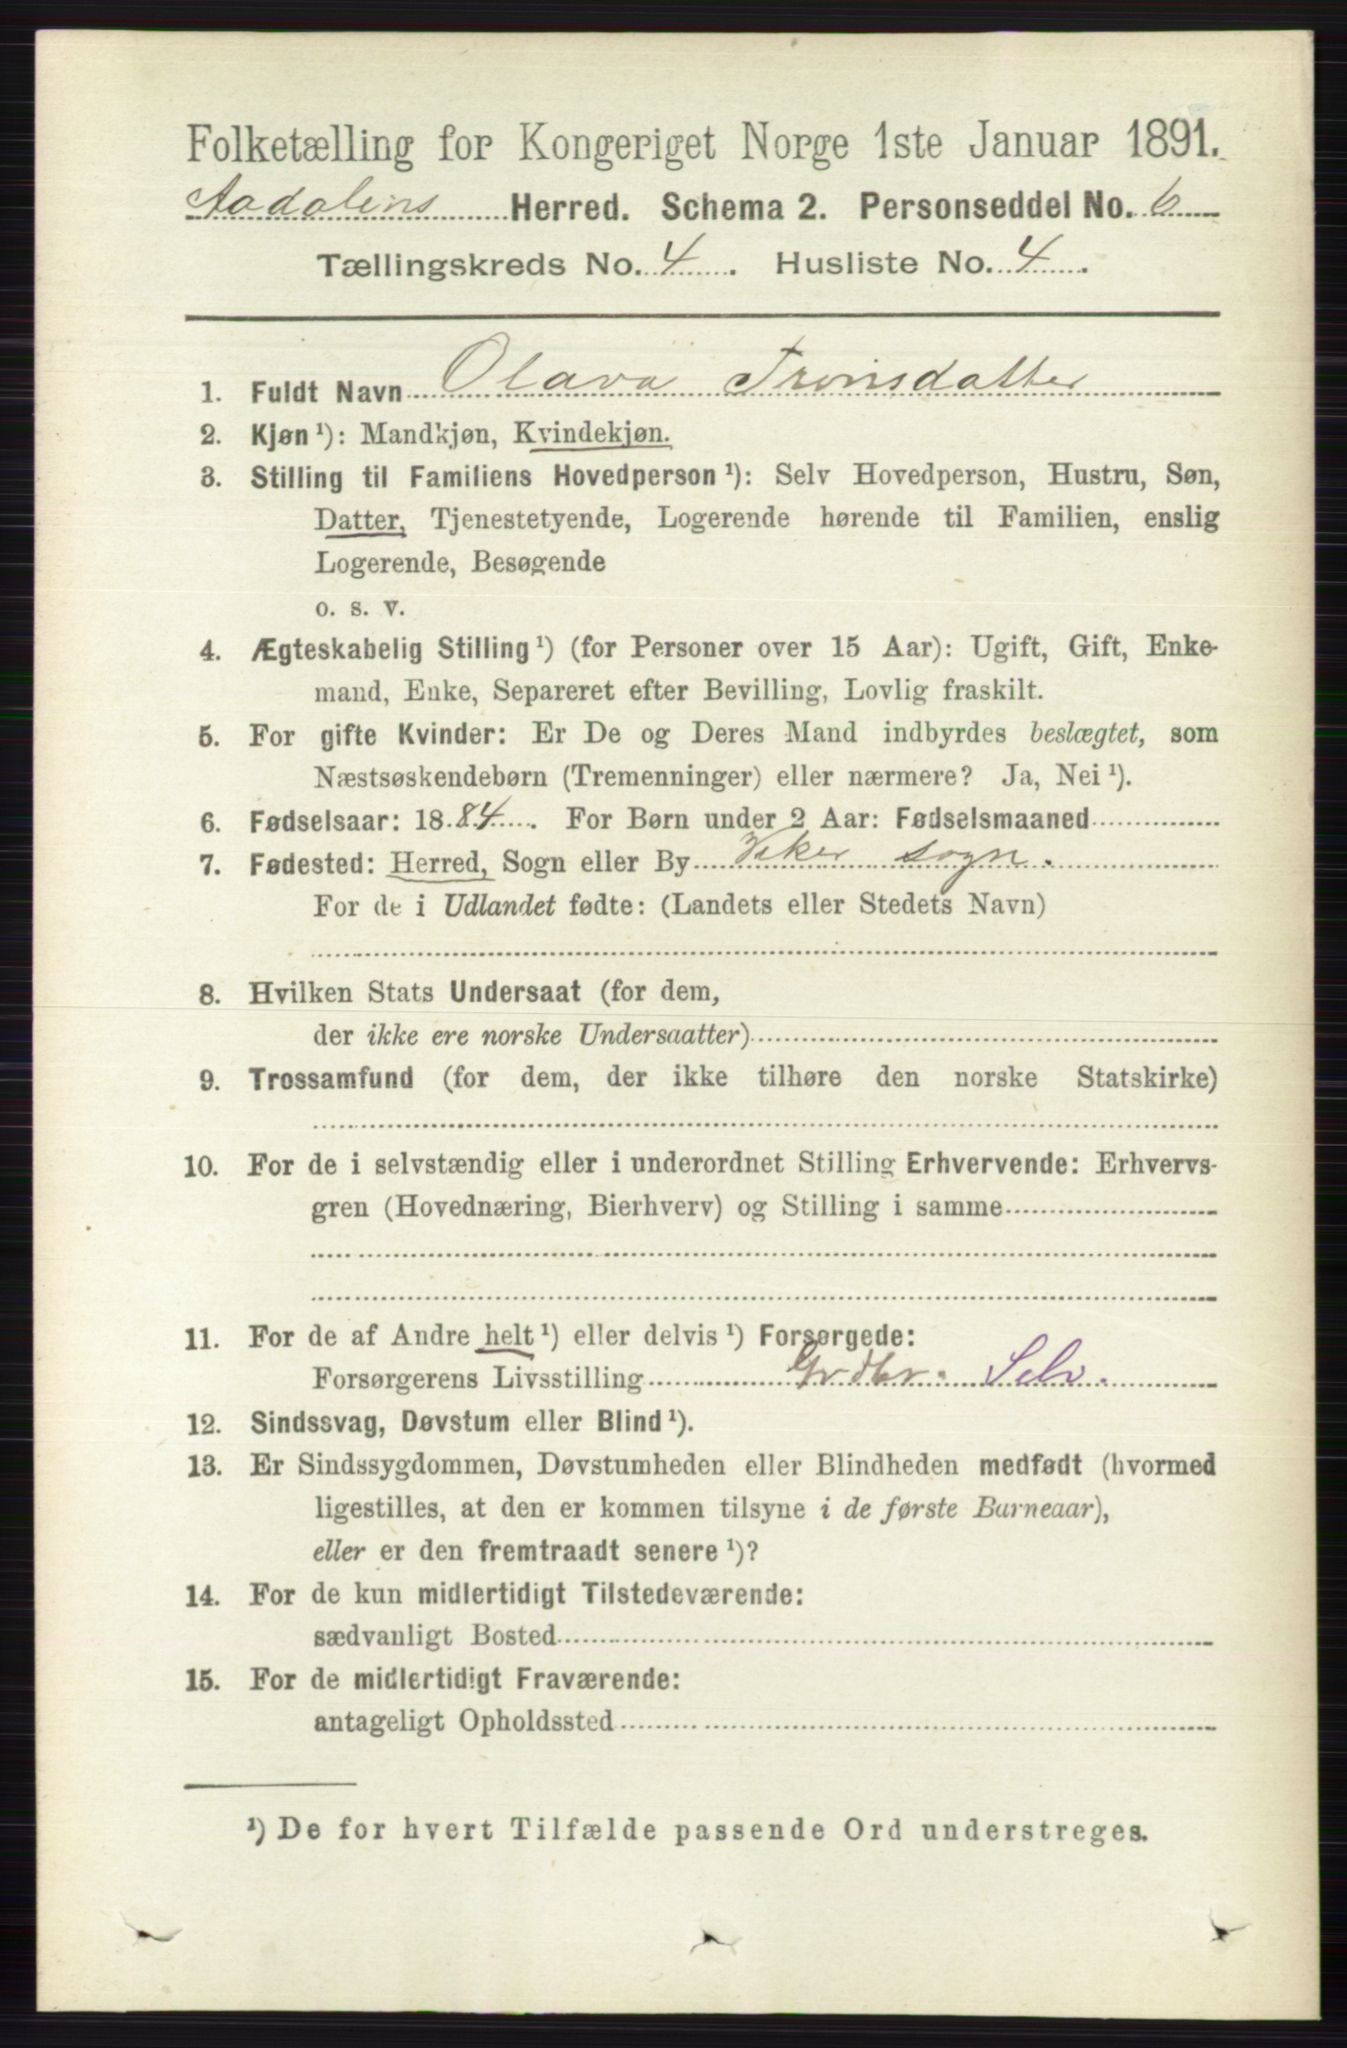 Folketælling for Kongeriget Norge 1ste Januar 1891.
Aadalens Herred. Schema 2. Personseddel No. 6
Tællingskreds No. 4. Husliste No. 4.
1. Fuldt Navn Olava Tronsdatter
2. Kjøn¹): Mandkjøn, Kvindekjøn.
3. Stilling til Familiens Hovedperson¹): Selv Hovedperson, Hustru, Søn,
Datter, Tjenestetyende, Logerende hørende til Familien, enslig
Logerende, Besøgende
o. s. v.
4. Ægteskabelig Stilling¹) (for Personer over 15 Aar): Ugift, Gift, Enke-
mand, Enke, Separeret efter Bevilling, Lovlig fraskilt.
5. For gifte Kvinder: Er De og Deres Mand indbyrdes beslægtet, som
Næstsøskendebørn (Tremenninger) eller nærmere? Ja, Nei¹).
6. Fødselsaar: 1884. For Børn under 2 Aar: Fødselsmaaned
7. Fødested: Herred, Sogn eller By Veker sogn.
For de i Udlandet fødte: (Landets eller Stedets Navn)
8. Hvilken Stats Undersaat (for dem,
der ikke ere norske Undersaatter)
9. Trossamfund (for dem, der ikke tilhøre den norske Statskirke)
10. For de i selvstændig eller i underordnet Stilling Erhvervende: Erhvervs-
gren (Hovednæring, Bierhverv) og Stilling i samme
11. For de af Andre helt¹) eller delvis¹) Forsørgede:
Forsørgerens Livsstilling Grdbr. Selv.
12. Sindssvag, Døvstum eller Blind¹).
13. Er Sindssygdommen, Døvstumheden eller Blindheden medfødt (hvormed
ligestilles, at den er kommen tilsyne i de første Barneaar),
eller er den fremtraadt senere¹)?
14. For de kun midlertidigt Tilstedeværende:
sædvanligt Bosted
15. For de midlertidigt Fraværende:
antageligt Opholdssted
¹) De for hvert Tilfælde passende Ord understreges.